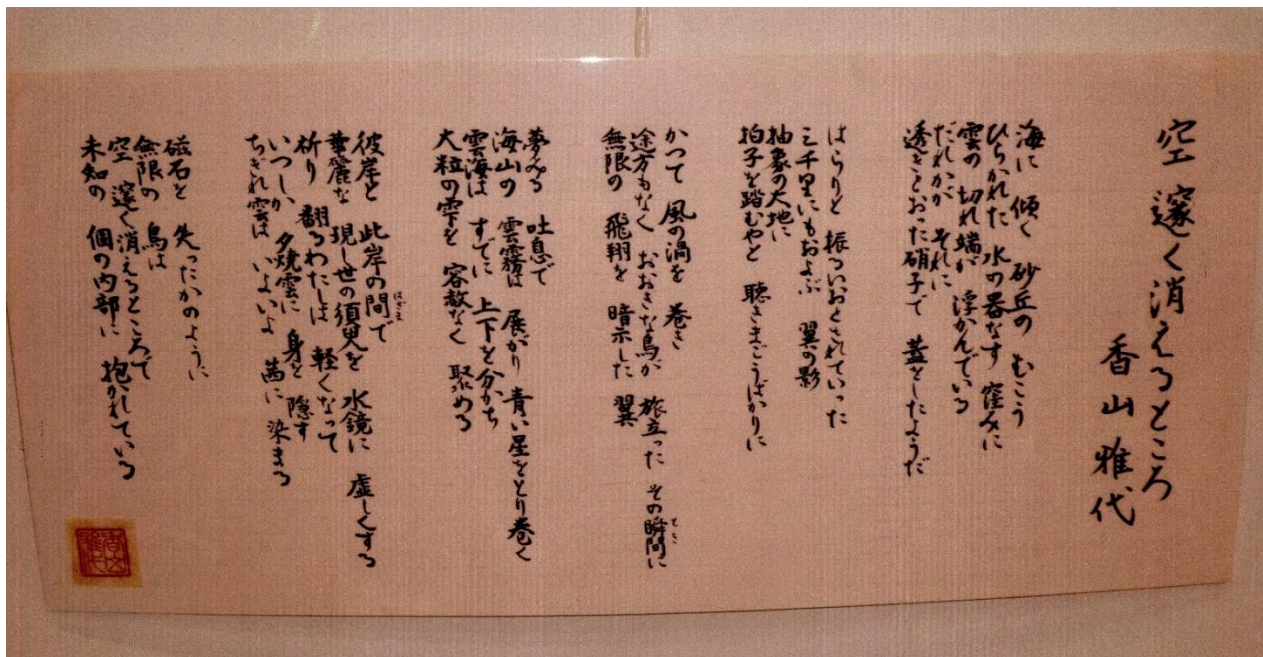 空 邃く消えるところ
香山雅代
海に 傾く 砂丘の むこう
ひらかれた 水の器なす 窪みに
雲の 切れ端が 浮かんでいる
だれかが それに
透きとおった硝子で 蓋をしたようだ
はらりと 振るいおとされていった
三千里にもおよぶ 翼の影
抽象の大地に
拍子を踏むやと 聴きまごうばかりに
かつて 風の渦を 巻き
途方もなく おおきな鳥が 旅立った その瞬間に
とき
無限の 飛翔を 暗示した 翼
夢みる 吐息で
海山の 雲霧は 展がり 青い星をとり巻く
雲海は すでに 上下を分かち
大粒の雫を 容赦なく 聚める
彼岸と 此岸の間で
はざま
華麗な 現し世の須臾を 水鏡に 虚しくする
祈り 翻るわたしは 軽くなって
いつしか 夕焼雲に 身を 隠す
ちぎれ雲は いよいよ 茜に 染まる
磁石を 失ったかのように
無限の 鳥は
空 邃く消えるところで
未知の 個の内部に 抱かれている